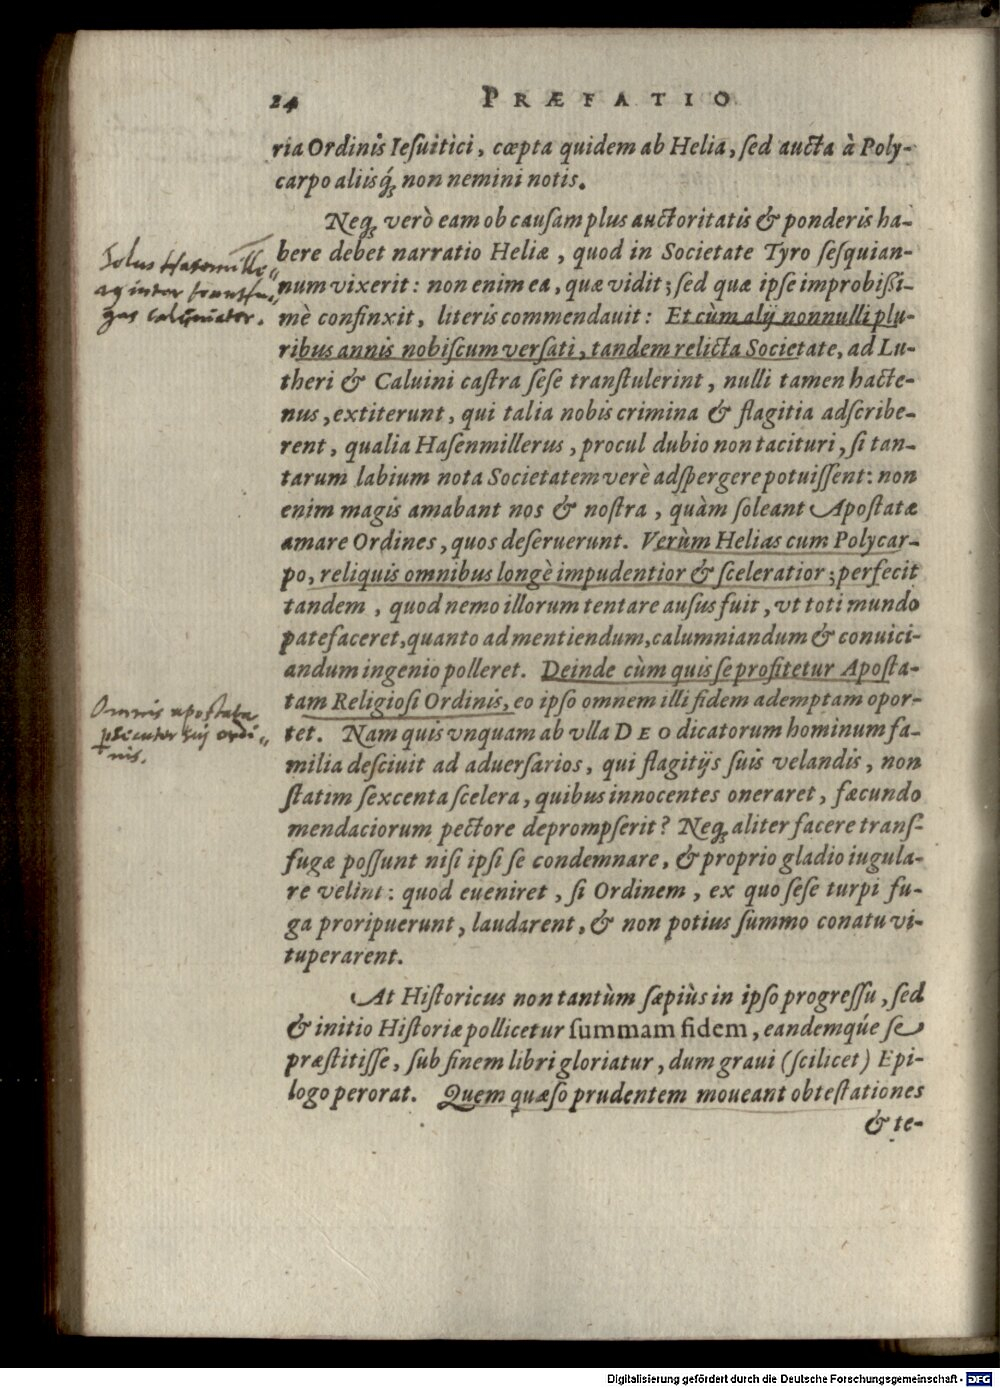 24 PRÆFATIO
ria Ordinis Ieſuitici, cœpta quidem ab Helia, ſed aucta à Poly-
carpo aliisq́ꝫ non nemini notis.
Neqꝫ verò eam ob cauſam plus auctoritatis & ponderis ha-
bere debet narratio Heliæ, quod in Societate Tyro ſeſquian-
num vixerit: non enim ea, quæ vidit; ſed quæ ipſe improbiſſi-
mè confinxit, literis commendauit: Et cùm alij nonnulli plu-
ribus annis nobiſcum verſati, tandem relicta Societate, ad Lu-
theri & Caluini caſtra ſeſe tranſtulerint, nulli tamen hacte-
nus, extiterunt, qui talia nobis crimina & flagitia adſcribe-
rent, qualia Haſenmillerus, procul dubio non tacituri, ſi tan-
tarum labium nota Societatem verè adſpergere potuiſſent: non
enim magis amabant nos & noſtra, quàm ſoleant Apoſtatæ
amare Ordines, quos deſeruerunt. Verùm Helias cum Polycar-
po, reliquis omnibus longè impudentior & ſceleratior; perfecit
tandem, quod nemo illorum tentare auſus fuit, vt toti mundo
patefaceret, quanto ad mentiendum, calumniandum & conuici-
andum ingenio polleret. Deinde cùm quis ſe profitetur Apoſta-
tam Religioſi Ordinis, eo ipſo omnem illi fidem ademptam opor-
tet. Nam quis vnquam ab vlla DEO dicatorum hominum fa-
milia deſciuit ad aduerſarios, qui flagitijs ſuis velandis, non
ſtatim ſexcenta ſcelera, quibus innocentes oneraret, fæcundo
mendaciorum pectore deprompſerit? Neqꝫ aliter facere tranſ-
fugæ poſſunt niſi ipſi ſe condemnare, & proprio gladio iugula-
re velint: quod eueniret, ſi Ordinem, ex quo ſeſe turpi fu-
ga proripuerunt, laudarent, & non potius ſummo conatu vi-
tuperarent.
At Hiſtoricus non tantùm ſæpiùs in ipſo progreſſu, ſed
& initio Hiſtoriæ pollicetur ſummam fidem, eandemqúe ſe
præſtitiſſe, ſub finem libri gloriatur, dum graui (ſcilicet) Epi-
logo perorat. Quem quæſo prudentem moueant obteſtationes
& te-
Solus Hasenmille„
rus inter transfu„
gas calumniator.
Omnis apostata
ordi„
nis.
Digitalisierung gefördert durch die Deutsche Forschungsgemeinschaft - DFG